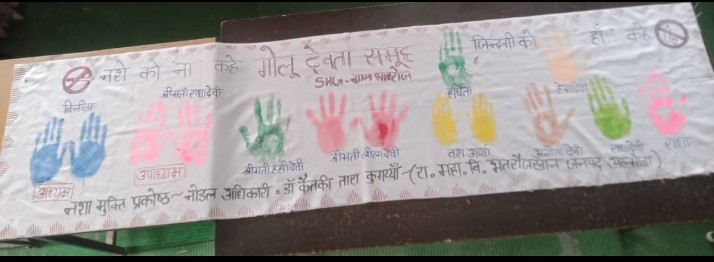 नशे को ना कहे
गोलू देवता समूह
SHG-ग्राम
जिन्दगी को हाँ कहे
विनीता
श्रीमती राधा देवी
हर्षिता
हेमा देवी
अध्यक्ष
उपाध्यक्ष
श्रीमती हंसी देवी
श्रीमती लीला देवी
राधा देवी
नशा मुक्ति प्रकोष्ठ ~ नोडल अधिकारी - डॉ केतकी तारा कुमय्याँ - (रा० महा० वि० भतरौंजखान जनपद अल्मोड़ा)